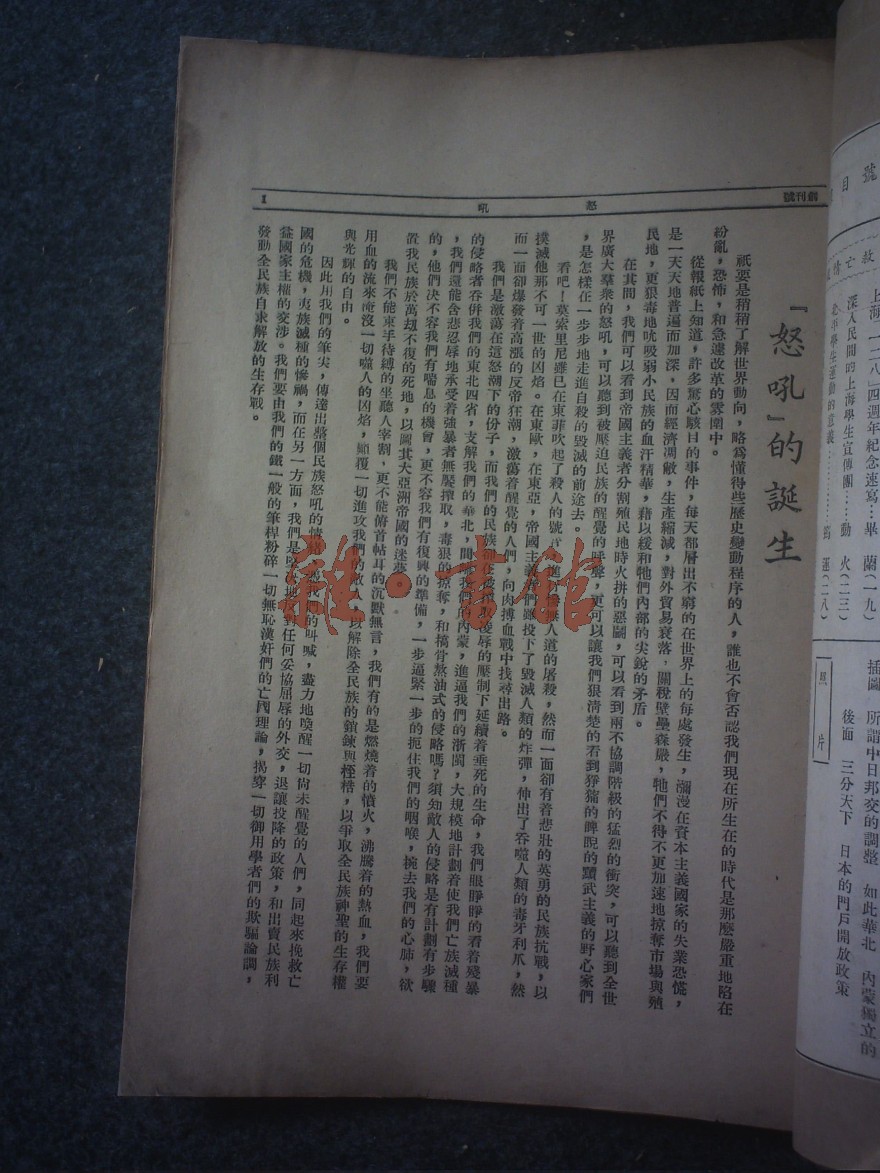 創刊號
怒吼
1
『怒吼』的誕生
祇要是稍稍了解世界動向，略爲懂得些歷史變動程序的人，誰也不會否認我們現在所生在的時代是那麼嚴重地陷在
紛亂，恐怖，和急遽改革的雰圍中。
從報紙上知道，許多驚心駭目的事件，每天都層出不窮的在世界上的每處發生，瀰漫在資本主義國家的失業恐慌，
是一天天地普遍而加深，因而經濟凋敝，生產縮減，對外貿易衰落，關稅壁壘森嚴，牠們不得不更加速地掠奪市場與殖
民地，更狠毒地吮吸弱小民族的血汗精華，藉以緩和牠們內部的尖銳的矛盾。
在其間，我們可以看到帝國主義者分割殖民地時火拼的惡鬭，可以看到兩不協調階級的猛烈的衝突，可以聽到全世
界廣大羣衆的怒吼，可以聽到被壓迫民族的醒覺的呼聲，更可以讓我們狠清楚的看到猙獰的睥睨的黷武主義的野心家們
，是怎樣在一步步地走進自殺的毀滅的前途去。
看吧！莫索里尼雖已在東菲吹起了殺人的號 無人道的屠殺，然而一面卻有着悲壯的英勇的民族抗戰，以
撲滅他那不可一世的凶焰。在東歐，在東亞，帝國主義 們雖投下了毀滅人類的炸彈，伸出了吞噬人類的毒牙利爪，然
而一面卻爆發着高漲的反帝狂潮，激蕩着醒覺的人們，向肉搏血戰中找尋出路。
我們是激蕩在這怒潮下的份子，而我們的民族 的壓制下延續着垂死的生命，我們眼睜睜的看着殘暴
的侵略者吞併我們的東北四省，支解我們的華北， 我們的內蒙，進逼我們的浙閩，大規模地計劃着使我們亡族滅種
，我們還能含悲忍辱地承受着強暴者無饜搾取，毒狠的掠奪，和搞骨熬油式的侵略嗎？須知敵人的侵略是有計劃有步驟
的，他們決不容我們有喘息的機會，更不容我們有復興的準備，一步逼緊一步的扼住我們的咽喉，椀去我們的心肺，欲
置我民族於萬刼不復的死地，以圖其大亞洲帝國的迷夢。
我們不能束手待縛的坐聽人宰割，更不能俯首帖耳的沉默無言，我們有的是燃燒着的憤火，沸騰着的熱血，我們要
用血的流來淹沒一切噬人的凶焰，顛覆一切進攻我們的敵人，以解除全民族的鎖鍊與桎梏，以爭取全民族神聖的生存權
與光輝的自由。
因此用我們的筆尖，傳達出整個民族怒吼的情緒， 我們的叫喊，盡力地喚醒一切尙未醒覺的人們，同起來挽救亡
國的危機，夷族滅種的慘禍，而在另一方面，我們是堅 地反對任何妥協屈辱的外交，退讓投降的政策，和出賣民族利
益國家主權的交涉。我們要由我們的鐵一般的筆桿粉碎一切無恥漢奸們的亡國理論，揭穿一切御用學者們的欺騙論調，
發動全民族自求解放的生存戰。
號
目
救亡情
上海「一二八」四週年紀念速寫…畢 蘭（一九）
深入民間的上海學生宣傳團……勵 火（二三）
北平學生運動的意義…………篤 蓮（二八）
照片
插圖 所謂中日邦交的調整 如此華北 內蒙獨立的
後面 三分天下 日本的門戶開放政策
雜·書館